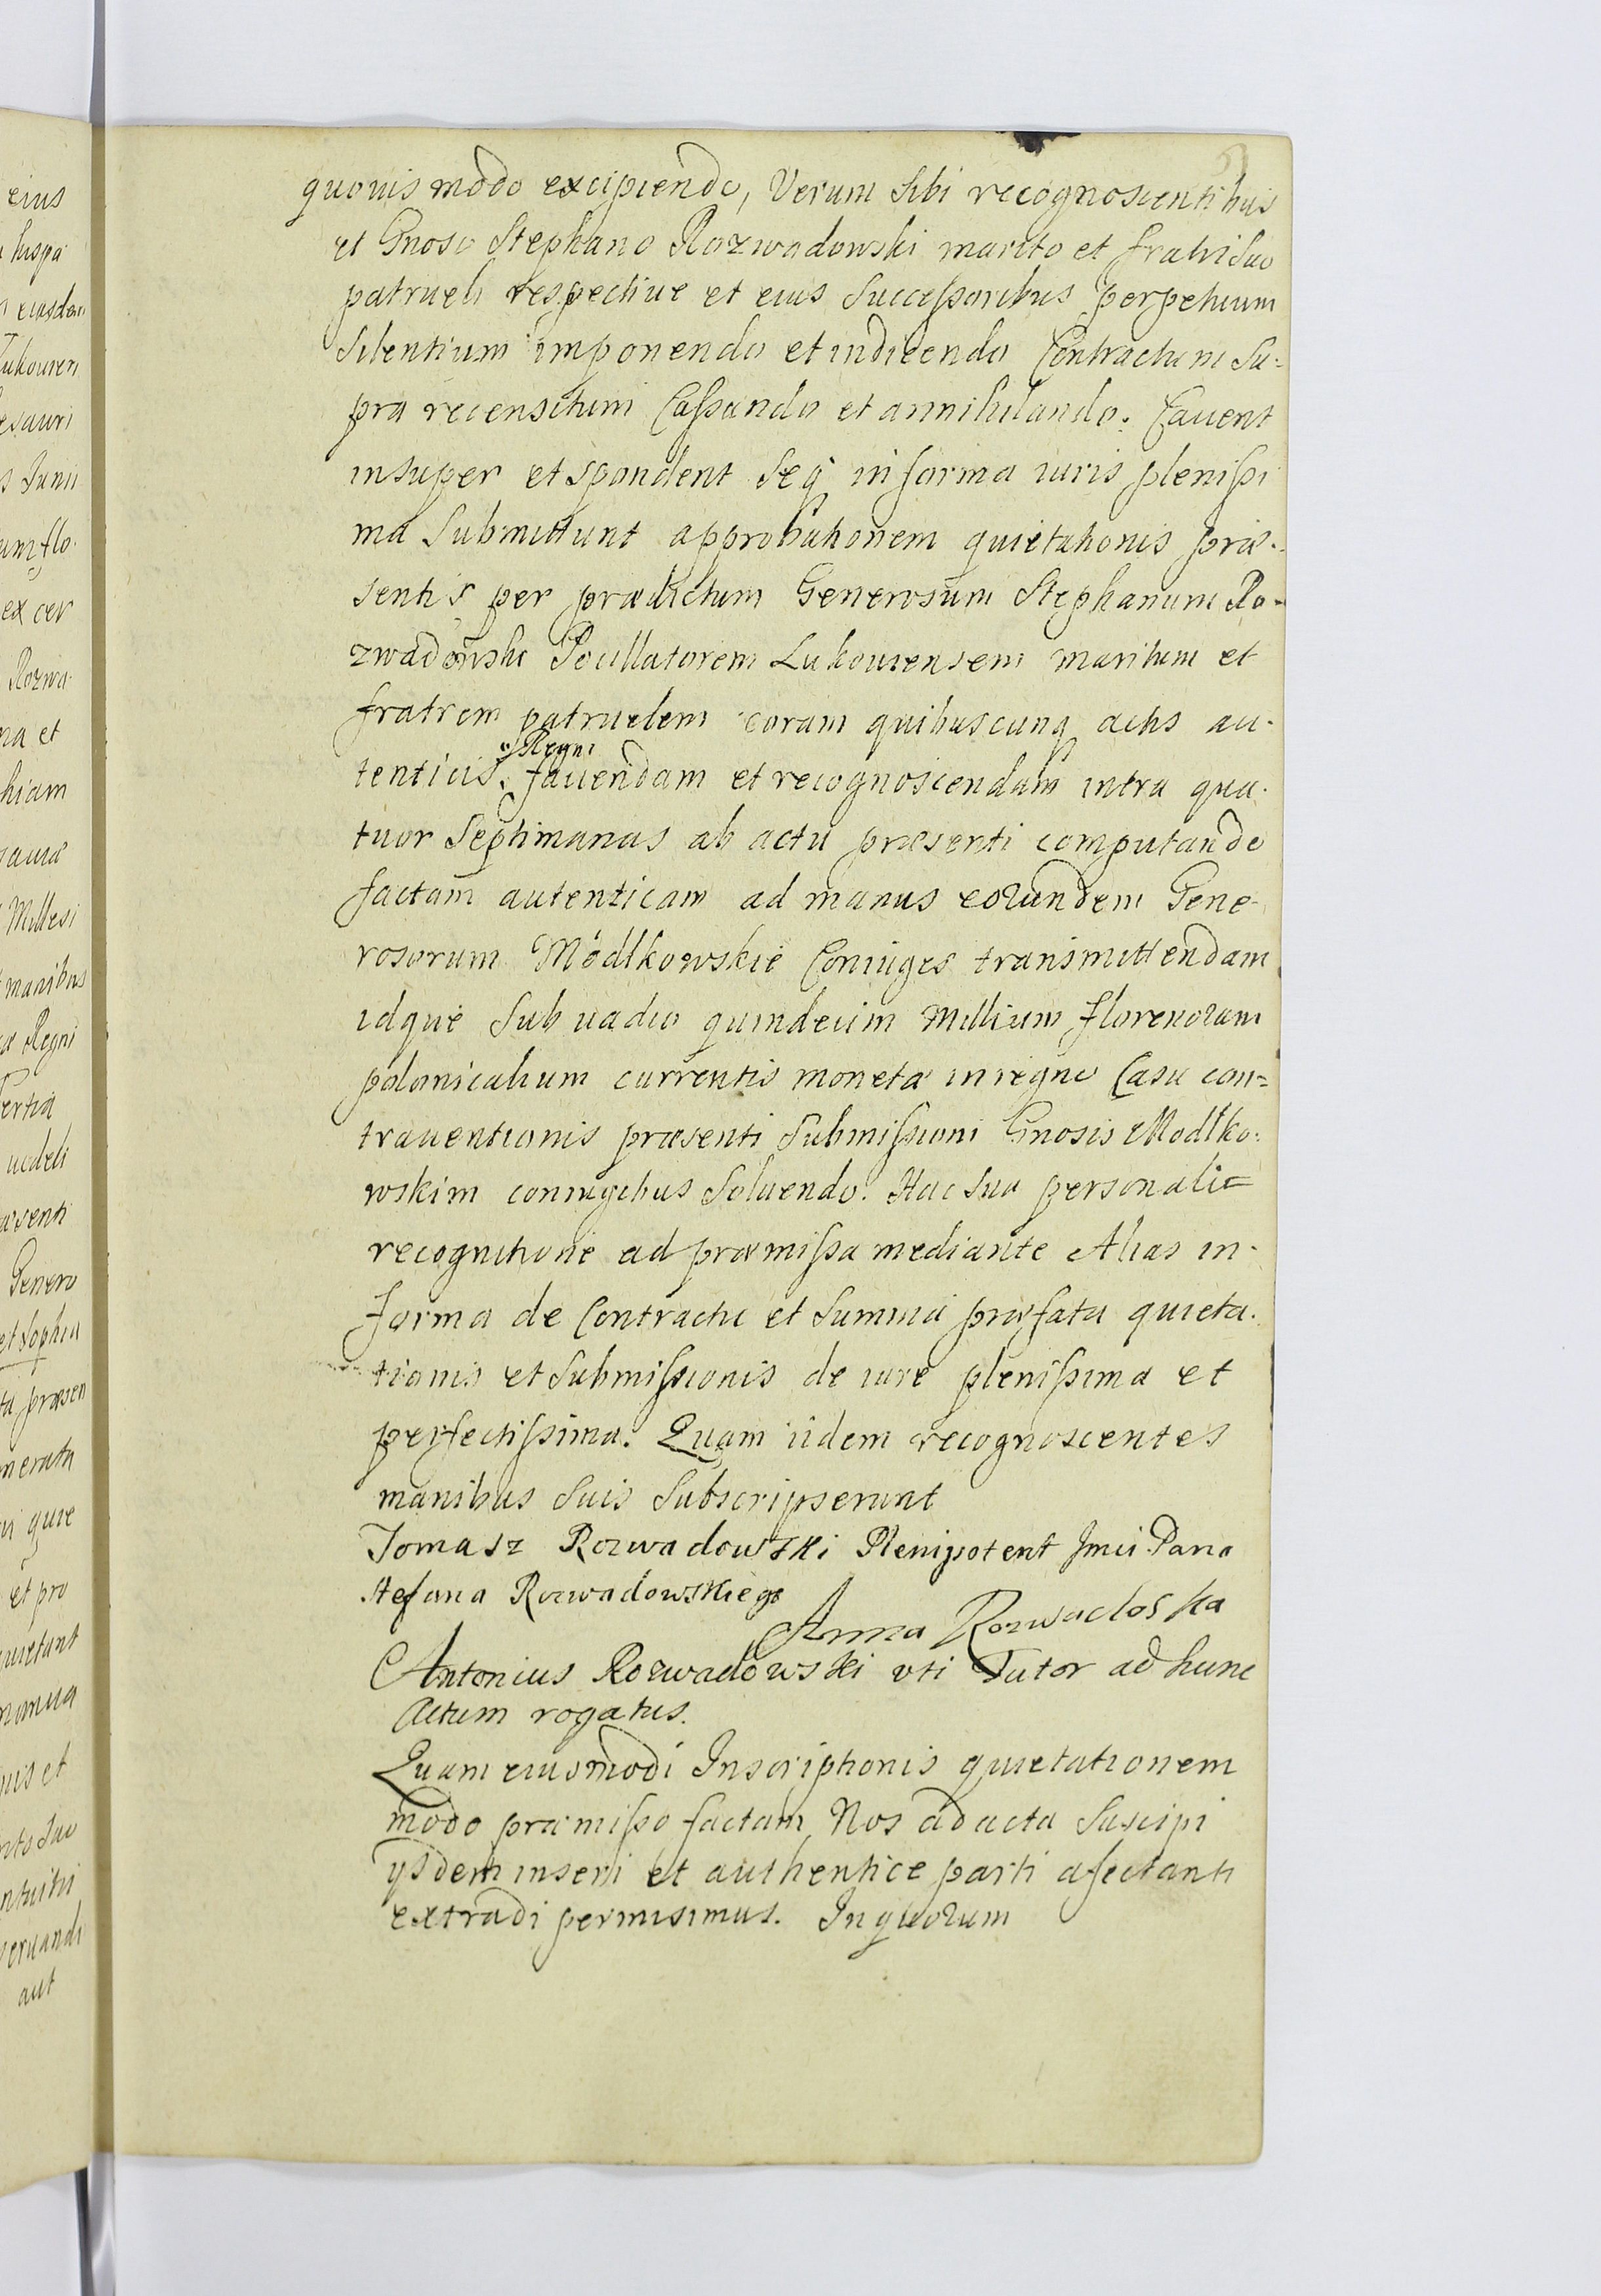 quouis modo excipiendo, Verum Sibi recognoscentibus
et Gnoso Stephano Rozwadowski marito et fratri Suo
patrueli respective et eius Successoribus perpetuum
Silentium imponendo et indicendo Contractum Su-
pra recensitum Cassando et annihilando. Cauent
insuper et spondent Seq in forma iuris plenissi
ma Submittunt approbationem quietationis præ-
sentis per prædictum Generosum Stephanum Ro-
zwadowski Pocillatorem Lukouiensem maritum et
fratrem patruelem coram quibuscunq actis au-
tenticis Regni fauendam et recognoscendam intra qua-
tuor Septimanas ab actu præsenti computando
factam autenticam ad manus eorundem Gene-
rosorum Modlkowskie Coniuges transmittendam
idque Sub uadio quindecim Millium florenorum
polonicalium currentis monetæ in regno Casu con=
trauentionis præsenti Submissioni Gnosis Modlko-
wskim coniugibus Soluendo. Hac Sua personali=
recognitione ad præmissa mediante Alias in-
forma de Contractu et Summa præfata quieta-
tionis et Submissionis de iure plenissima et
perfectissima. Quam iidem recognoscentes
manibus Suis Subscripserunt
Tomasz Rozwadowski Plenipotent Jmci Pana
Stefana Rozwadowskiego
Anna Rozwadoska
Antonius Rozwadowski uti Tutor ad hunc
Actum rogatus.
Quam eiusmodi Inscriptionis quietationem
modo præmisso factam Nos ad acta Suscipi
ysdem inseri et authentice parti afectanti
extradi permisimus. In quorum